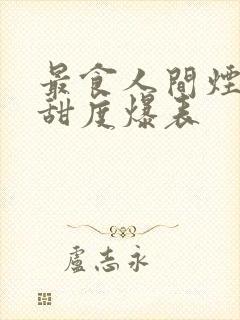 最食人間煙
甜度爆表
盧志永